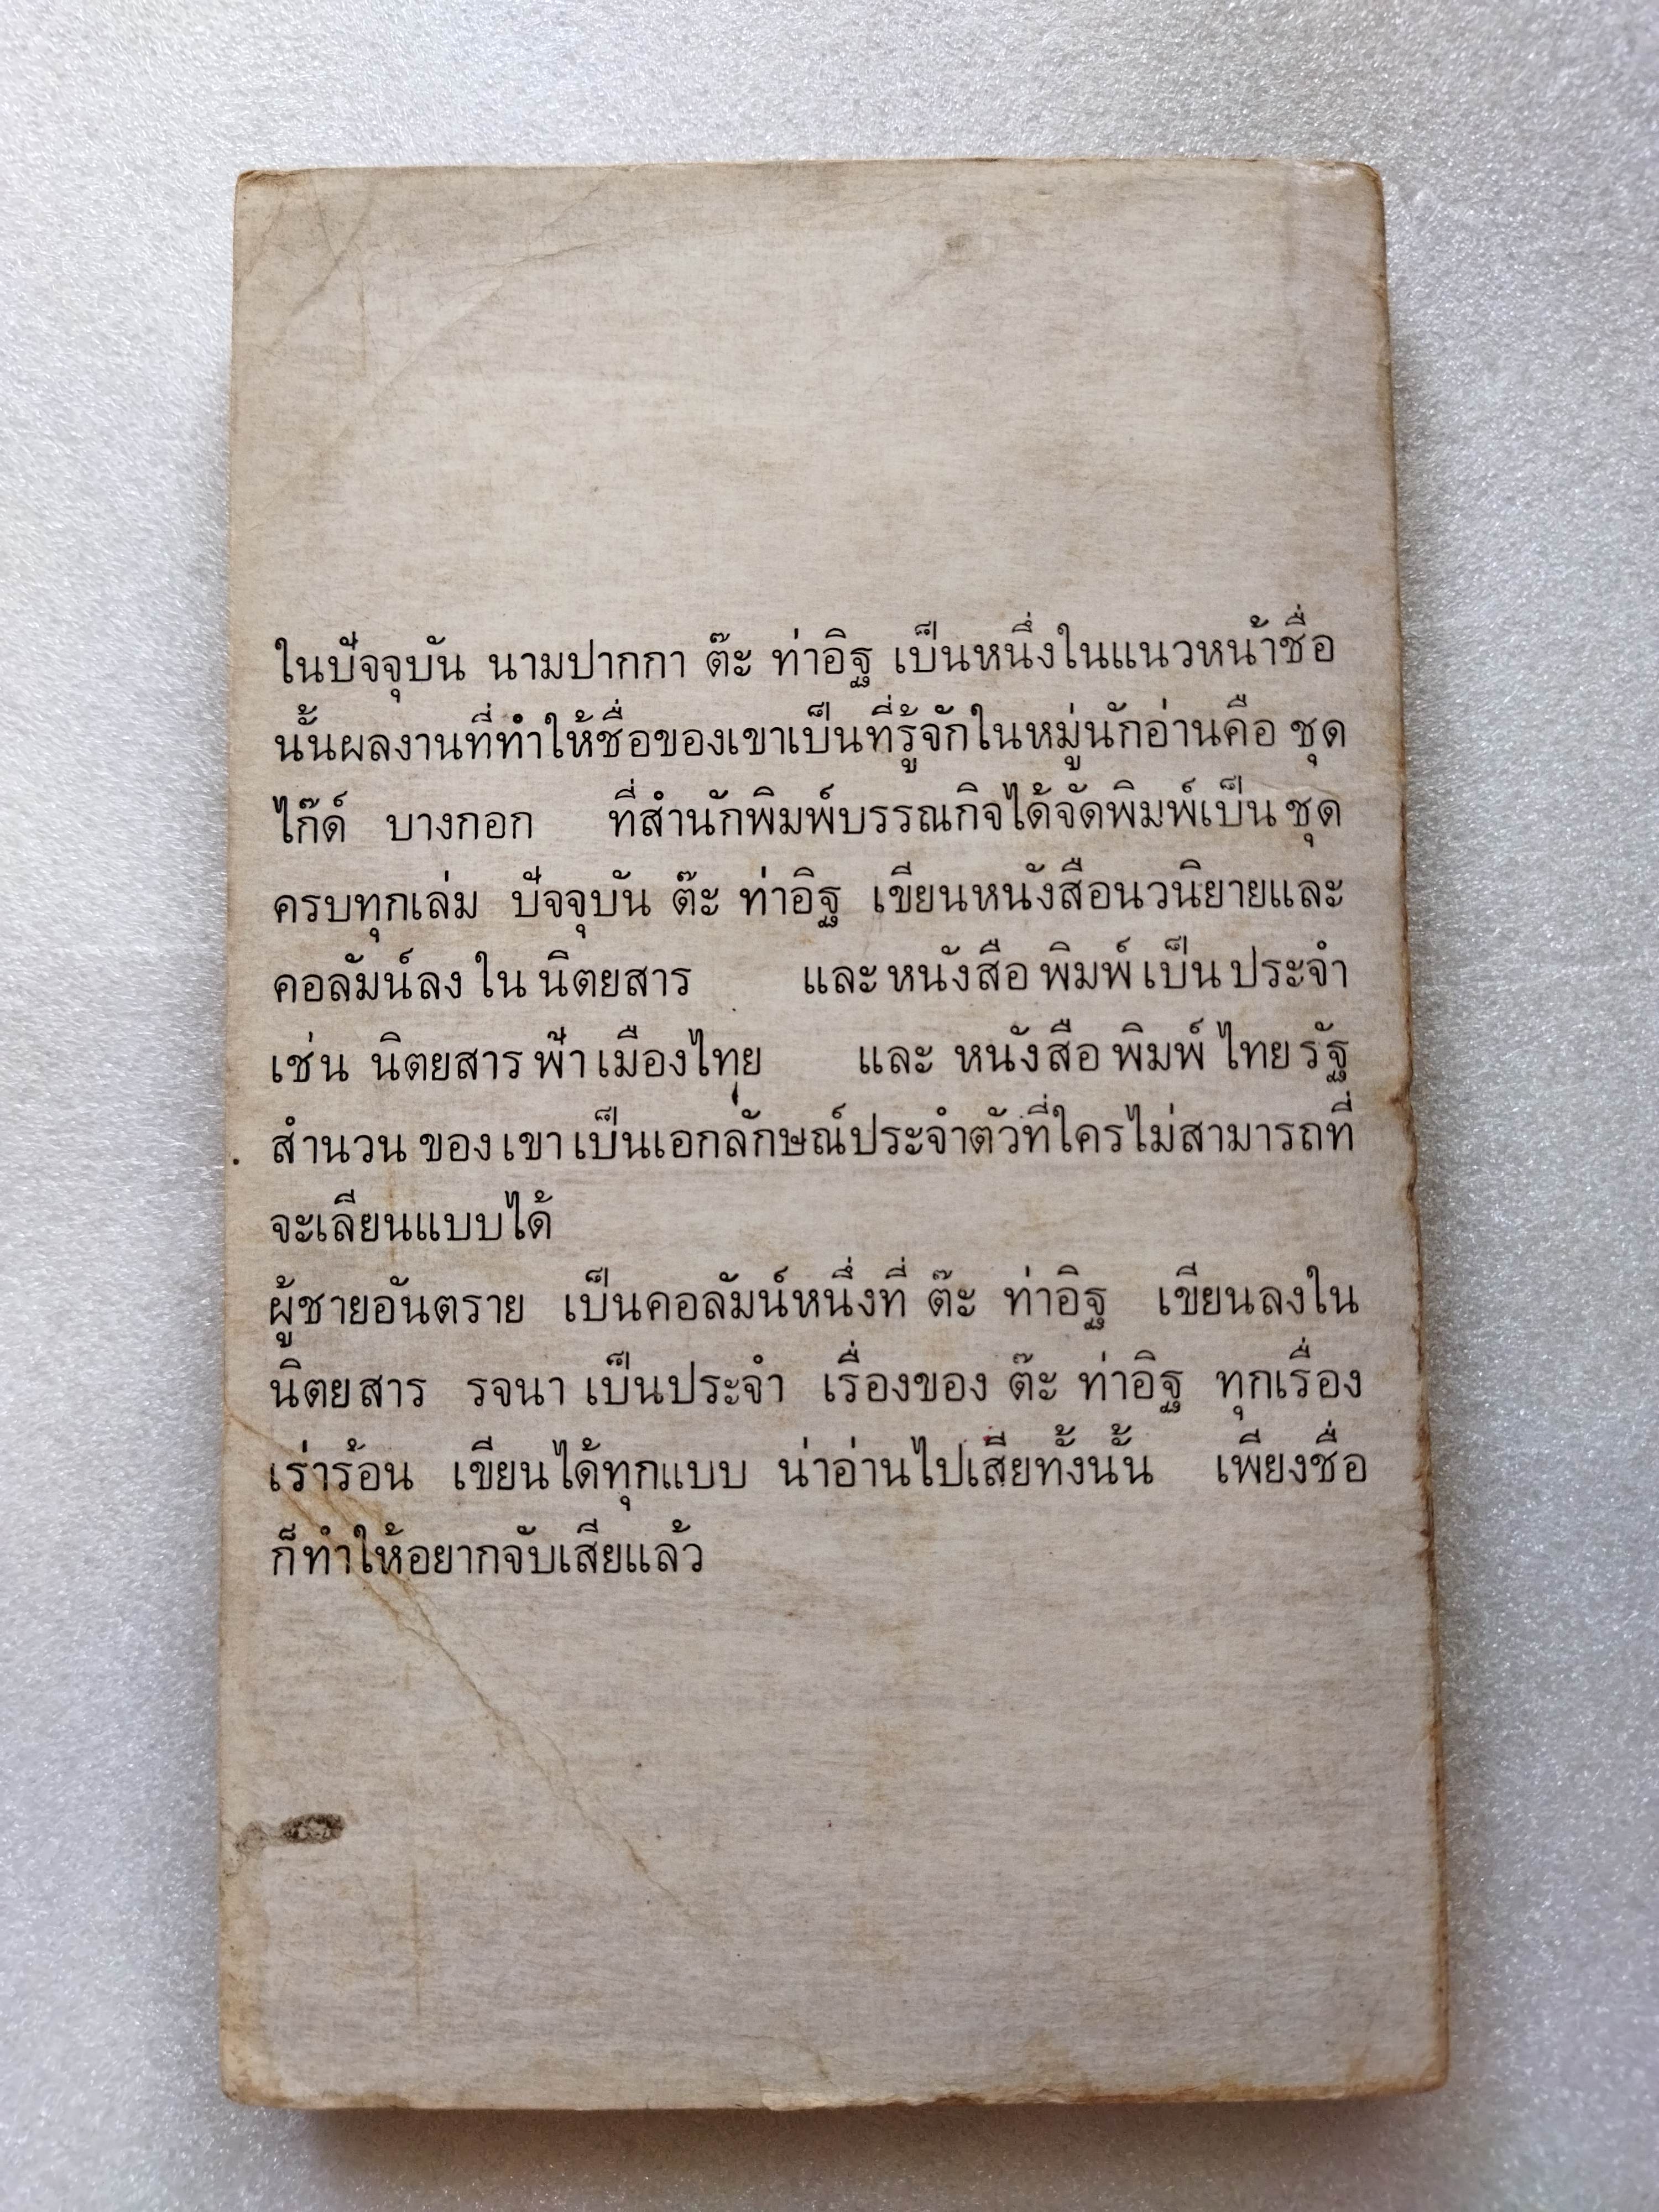 ในปัจจุบัน นามปากกา ต๊ะ ท่าอิฐ เป็นหนึ่งในแนวหน้าชื่อ
นั้นผลงานที่ทำให้ชื่อของเขาเป็นที่รู้จักในหมู่นักอ่านคือ ชุด
ไก๊ด์ บางกอก ที่สำนักพิมพ์บรรณกิจได้จัดพิมพ์เป็นชุด
ครบทุกเล่ม ปัจจุบัน ต๊ะ ท่าอิฐ เขียนหนังสือนวนิยายและ
คอลัมน์ลง ใน นิตยสาร และหนังสือพิมพ์เป็นประจำ
เช่น นิตยสารฟ้าเมืองไทย และ หนังสือพิมพ์ ไทยรัฐ
สำนวน ของ เขา เป็นเอกลักษณ์ประจำตัวที่ใครไม่สามารถที่
จะเลียนแบบได้
ผู้ชายอันตราย เป็นคอลัมน์หนึ่งที่ ต๊ะ ท่าอิฐ เขียนลงใน
นิตยสาร รจนา เป็นประจำ เรื่องของ ต๊ะ ท่าอิฐ ทุกเรื่อง
เร่าร้อน เขียนได้ทุกแบบ น่าอ่านไปเสียทั้งนั้น เพียงชื่อ
ก็ทำให้อยากจับเสียแล้ว